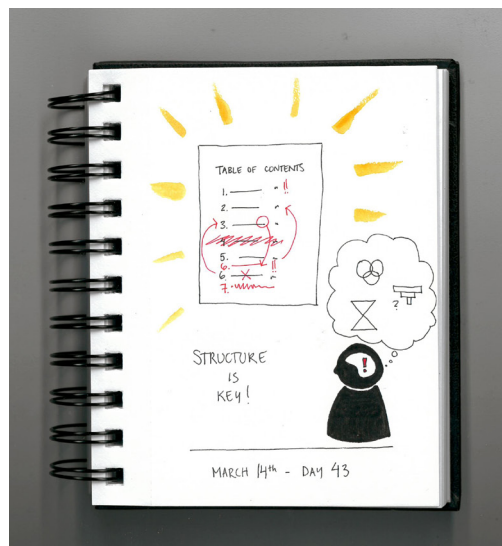 TABLE OF CONTENTS
1. !!
2.
3.
5.
6. !!
6
7.
?
!
STRUCTURE
IS
KEY!
MARCH 14th - DAY 43